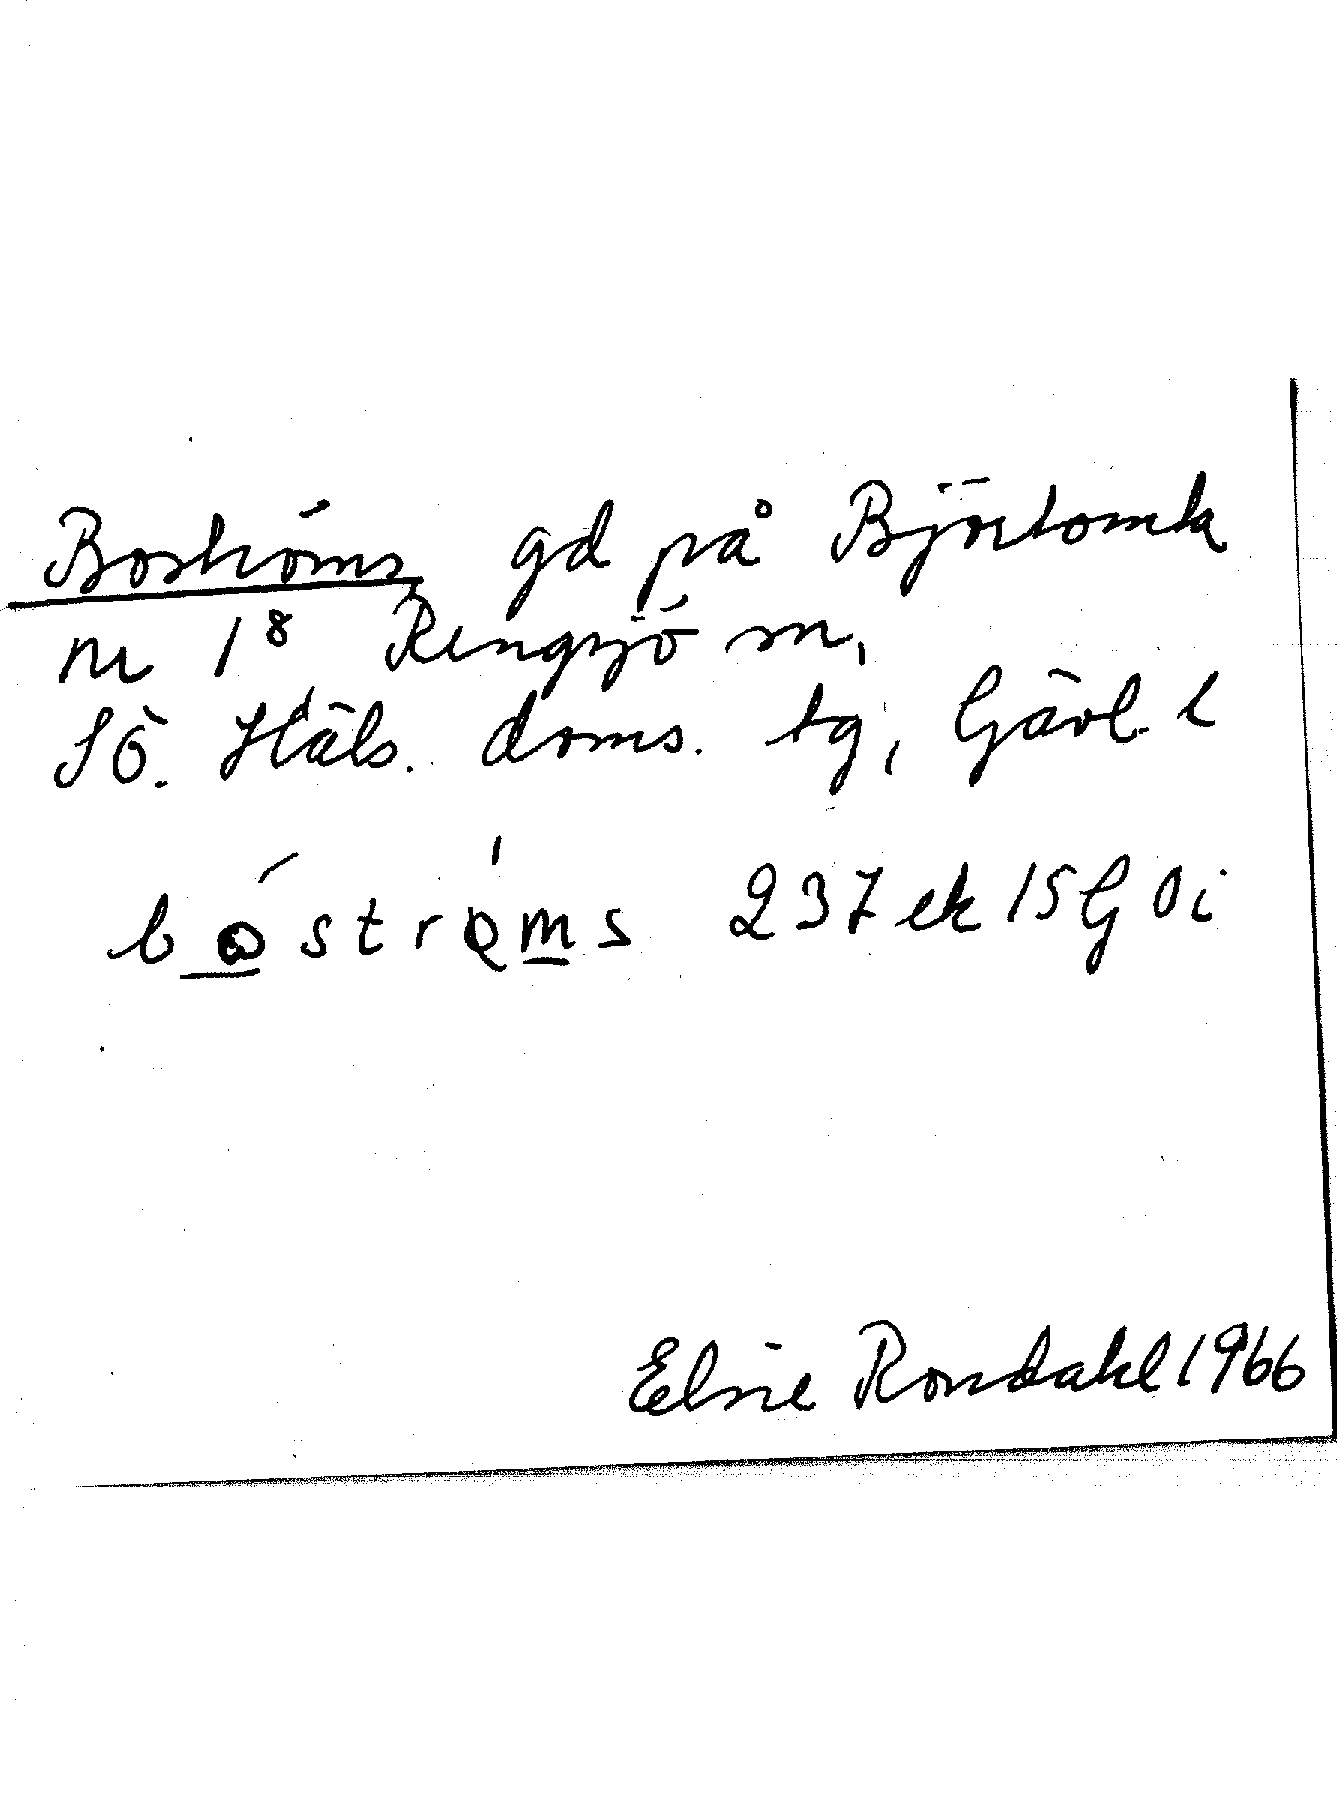 Boströms gd på Björtomta
nr 1⁸ Rengsjö sn,
Sö. Häls. doms. tg, Gävl. l
boströms 237 ek 15G 0i
Elsie Rondahl 1966